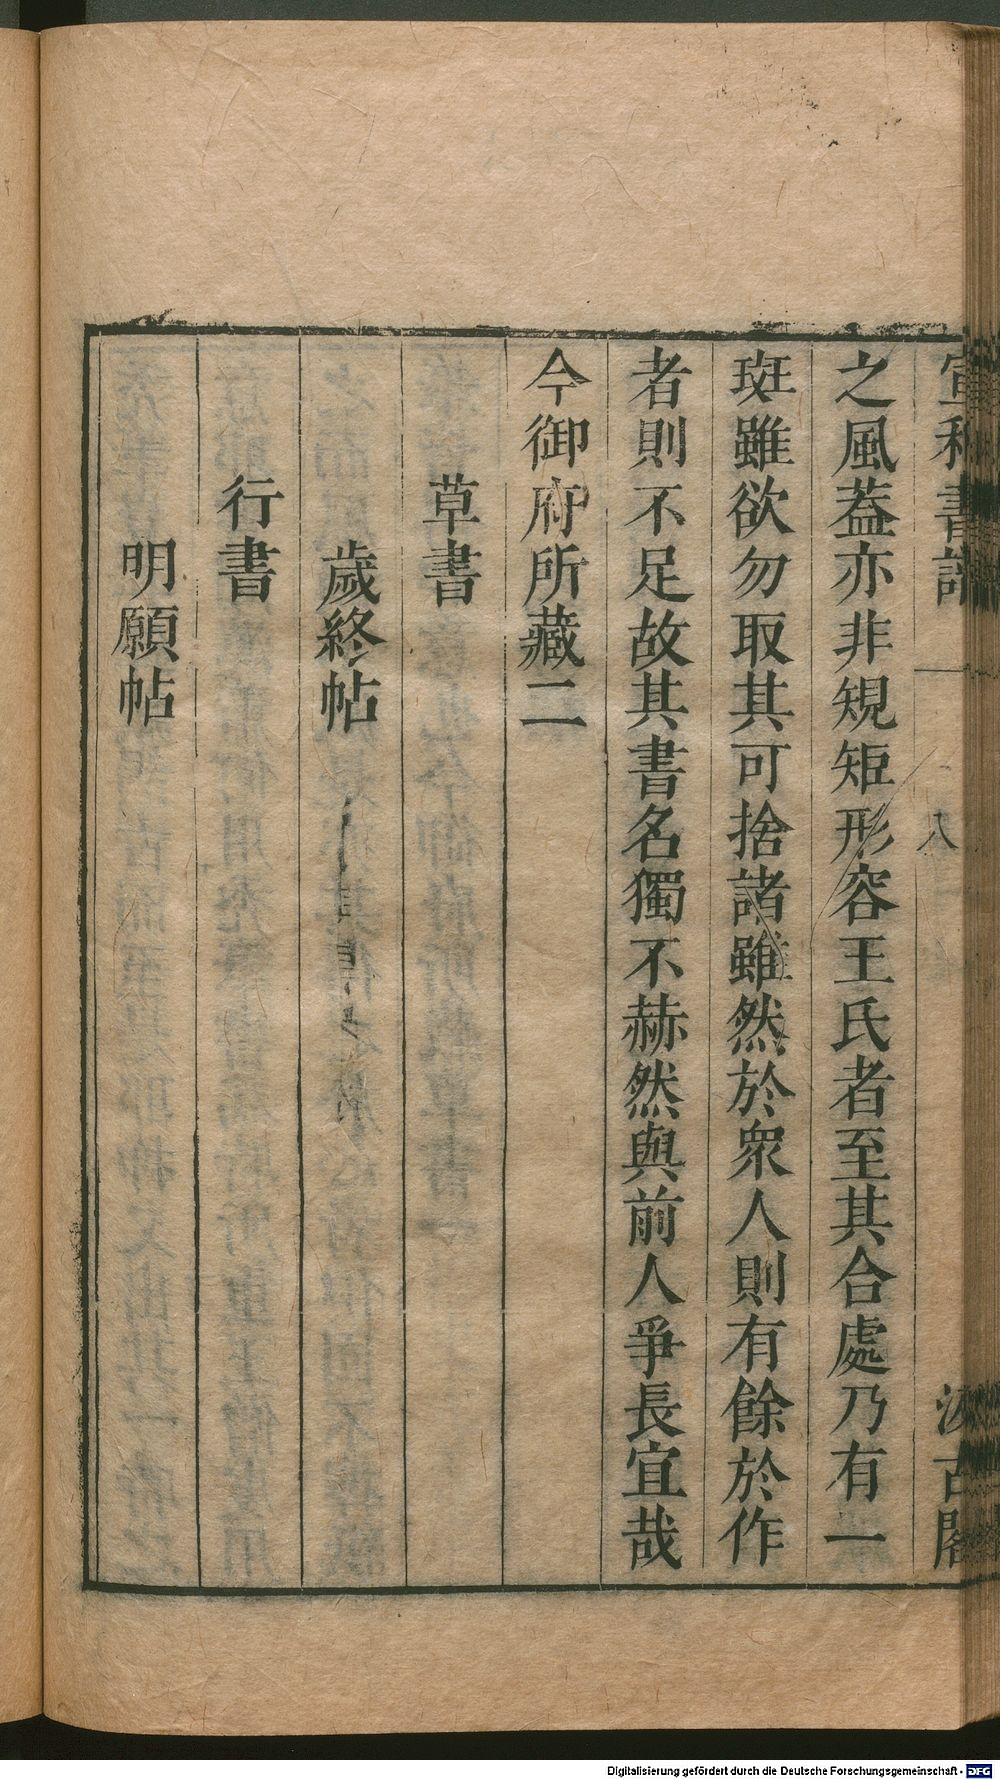 宣和書譜 八 汲古閣
之風葢亦非規矩形容王氏者至其合處乃有一
斑雖欲勿取其可捨諸雖然於衆人則有餘於作
者則不足故其書名獨不赫然與前人爭長宜哉
今御府所藏二
草書
歲終帖
行書
明願帖
Digitalisierung gefördert durch die Deutsche Forschungsgemeinschaft - DFG